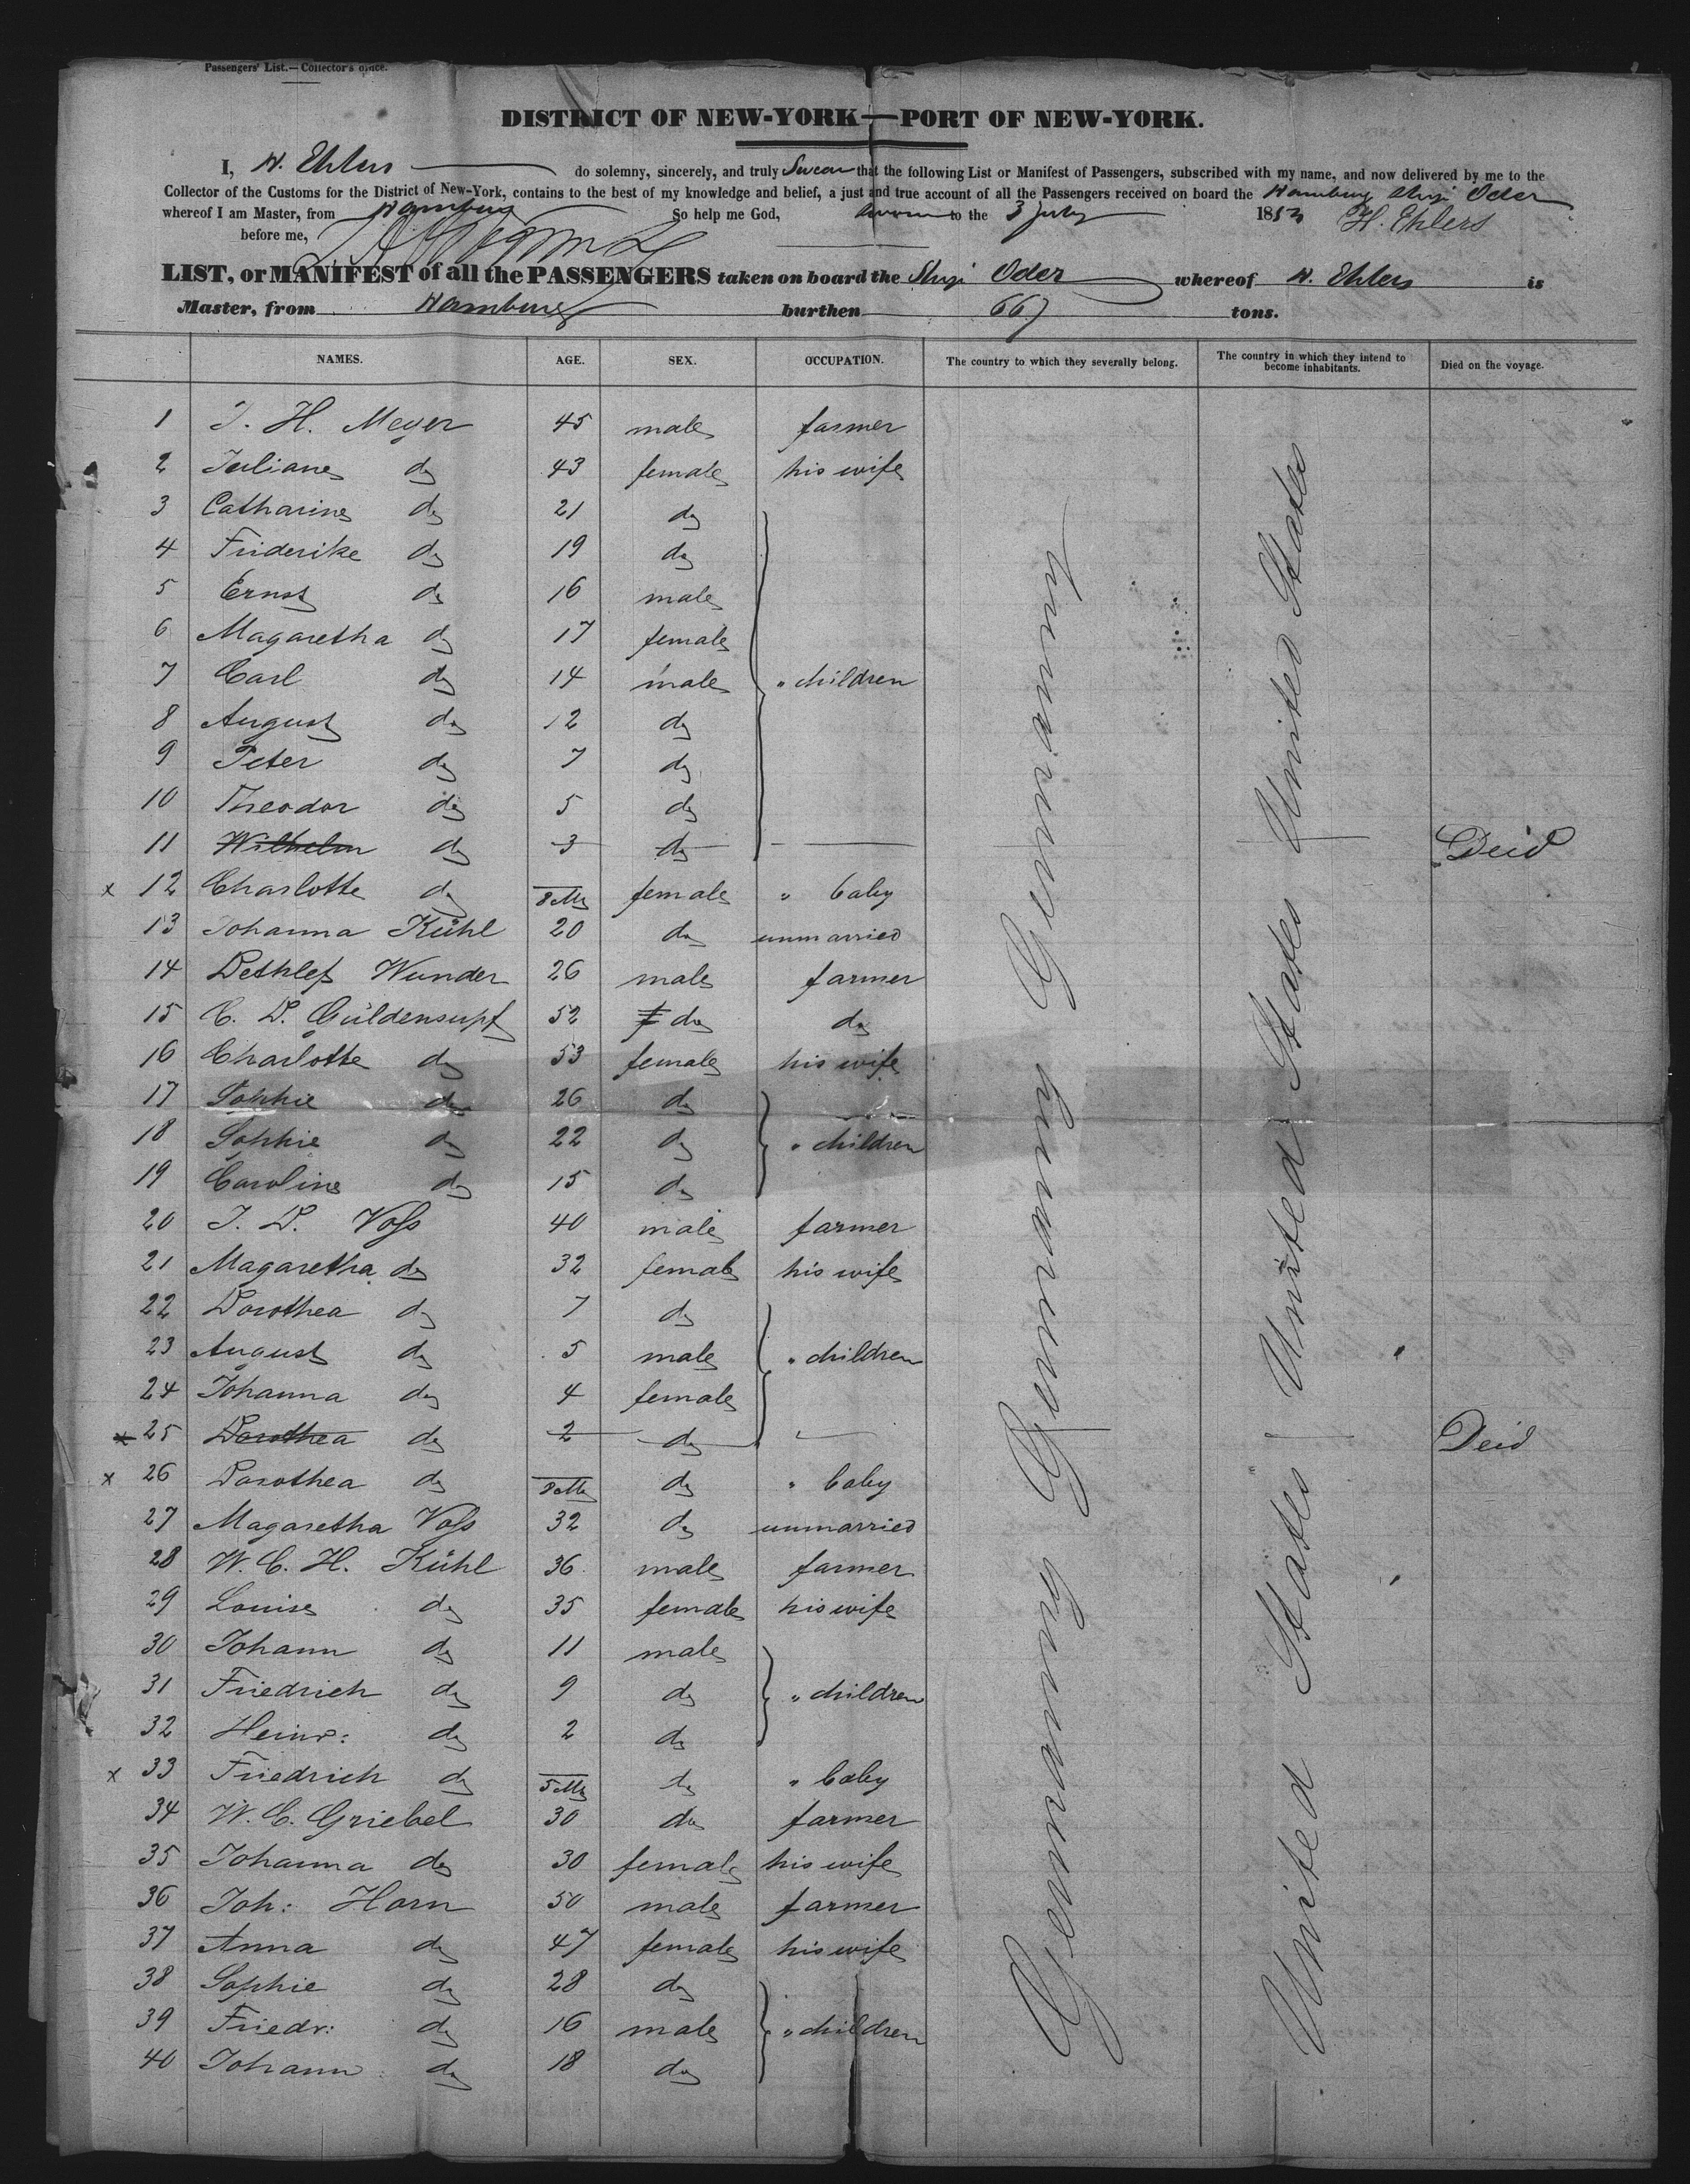 Passengers' List.—Collector's office.
DISTRICT OF NEW-YORK—PORT OF NEW-YORK.
I, H. Ehlers do solemny, sincerely, and truly Swear that the following List or Manifest of Passengers, subscribed with my name, and now delivered by me to the
Collector of the Customs for the District of New-York, contains to the best of my knowledge and belief, a just and true account of all the Passengers received on board the Hamburg Ship Oder
whereof I am Master, from Hamburg So help me God, to the 3 July 185 H. Ehlers
before me,
LIST, or MANIFEST of all the PASSENGERS taken on board the Ship Oder whereof H. Ehlers is
Master, from Hamburg burthen 667 tons.
NAMES. AGE. SEX. OCCUPATION. The country to which they severally belong. The country in which they intend to become inhabitants. Died on the voyage.
1 J. H. Meyer 45 male farmer
2 Juliane do 43 female his wife
3 Catharine do 21 do
4 Friderike do 19 do
5 Ernst do 16 male
6 Magaretha do 17 female
7 Carl do 14 male " children
8 August do 12 do
9 Peter do 7 do
10 Theodor do 5 do
11 Wilhelm do 3 do Deid
x 12 Charlotte do 8 Mts female " baby
13 Johanna Kühl 20 do unmarried
14 Dethlef Wunder 26 male farmer
15 C. D. Güldensupf 52 do do
16 Charlotte do 53 female his wife
17 Sophie do 26 do
18 Sophie do 22 do " children
19 Caroline do 15 do
20 J. D. Voss 40 male farmer
21 Magaretha do 32 female his wife
22 Dorothea do 7 do
23 August do 5 male " children
24 Johanna do 4 female
x 25 Dorothea do 2 do Deid
x 26 Dorothea do 8 Mts do " baby
27 Magaretha Voss 32 do unmarried
28 W. C. H. Kühl 36 male farmer
29 Louise do 35 female his wife
30 Johann do 11 male
31 Friedrich do 9 do " children
32 Heinr: do 2 do
x 33 Friedrich do 5 Mts do " baby
34 W. C. Griebel 30 do farmer
35 Johanna do 30 female his wife
36 Joh: Horn 50 male farmer
37 Anna do 47 female his wife
38 Sophie do 28 do
39 Friedr: do 16 male " children
40 Johann do 18 do
Germany Germany Germany Germany
United States United States United States